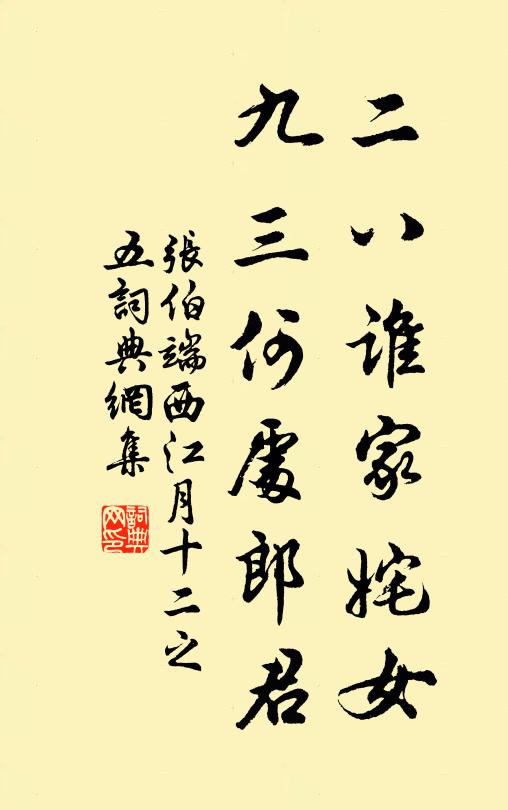 二八谁家姹女
九三何處郎君
張伯端西江月十二之
五詞典網集
詞典
网印